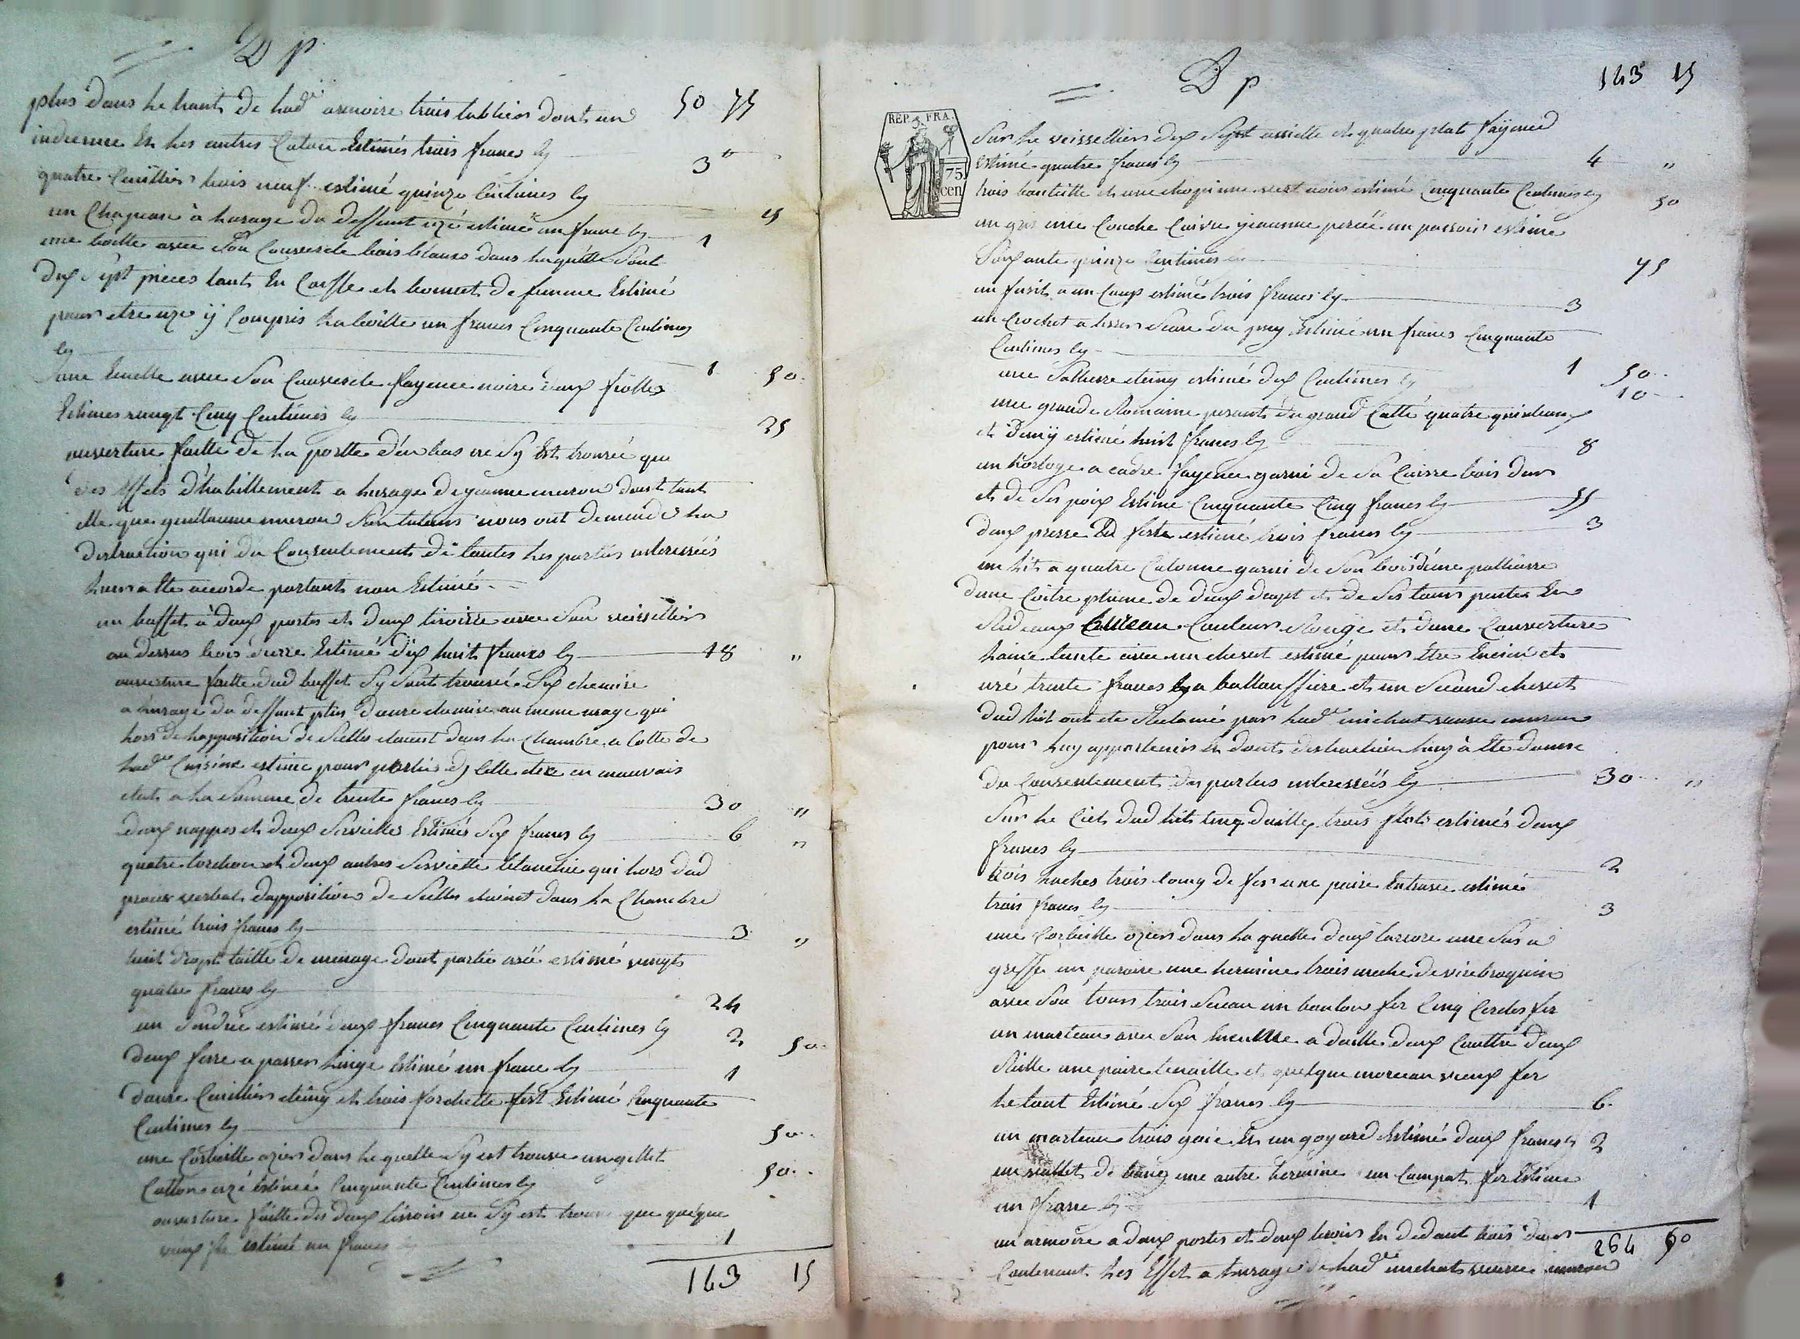 D p
plus dans le haut de lad.e armoire trois tabliers dont un 50 75
indienne et les autres Coton Estimés trois francs Cy 3
quatre Cuilliers bois neuf estimé quinze Centimes Cy 15
un Chapeau à lusage du deffunt uzé estimé un franc Cy 1
une boitte avec son Couvercle bois blanc dans laquelle sont
dix sept pieces tant en Coiffe et bonnet de femme Estimé
pour etre uzé ÿ Compris la boitte un francs Cinquante Centimes
Cy 1 50
une Ecuelle avec son Couvercle fayence noire deux fiolles
Estimes vingt Cinq Centimes Cy 25
ouverture faitte de la portte d'en bas ne sy Est trouvée que
des Effets d'habillement a lusage de jeanne muron dont tant
elle que guillaume muron son tuteur nous ont demandé la
distraction qui du Consentement de toutes les parties interessées
leurs a Ete accordé partant non Estimé
un buffet à deux portes et deux tiroirs avec son vaissellier
au dessus bois cerre Estimé dix huit francs Cy 18 "
ouverture faitte dud buffet sy sont trouvée six chemise
a lusage du deffunt plus douze chemise au meme usage qui
lors de lapposition de scelles etaient dans la Chambre a Cotte de
lad.e Cuisine estimé pour partie dicelle etre en mauvais
etat a la somme de trente francs Cy 30 "
deux nappes et deux serviettes Estimés six francs Cy 6 "
quatre torchon et deux autres serviette blanchie qui lors dud
proces verbal dapposition de scelles etaient dans la Chambre
estimé trois francs Cy 3 "
huit draps taille de menage dont partie usée estimé vingt
quatre francs Cy 24
un estimé deux francs Cinquante Centimes Cy 2 50
deux ferre a passer linge Estimé un franc Cy 1
douze Cuilliers eteing et trois forchette fert Estimé Cinquante
Centimes Cy 50
une Corbeille ozier dans laquelle sy est trouvé un gillet
Cotton uzé Estimée Cinquante Centimes Cy 50
ouverture faitte des deux tirroirs ne sy est trouvé que quelque
vieux fer estimé un francs Cy 1
143 15
D p 143 15
REP. FRA.
75
cen
Sur le vaissellier dix sept assiette et quatre plat fayance
Estimé quatre francs Cy 4 "
trois bouteille et une chopinne vert noir estimé Cinquante Centimes Cy 50
un une Couche Cuivre jeaunne percée un passoir estimé
soixante quinze Centimes Cy 75
un fusil a un Coup estimé trois francs Cy 3
un Crochet a du puy Estimé un francs Cinquante
Centimes Cy 1 50
une salliere eteing estimé dix Centimes Cy 10
une grande Romaine pesant du grand Cotté quatre quinteaux
et demÿ estimé huit francs Cy 8
un horloge a cadre fayence garni de sa Caisse bois dur
et de ses poix Estimé Cinquante Cinq francs Cy 55
deux presse estimé trois francs Cy 3
un lit a quatre Colonne garni de son bois d'une palliasse
dune Coitre plume de deux drapt et de ses tours pentes En
Rideaux Couleur Rouge et dune Couverture
laine teinte avec un chevet estimé pour Etre Encien et
uzé trente francs Cy a balloufiere et un second chevet
dud lit ont ete Reclamé par lad.e michat veuve muron
pour luy appartenir et dont distraction luy à Ete donné
du Consentement des parties interessées Cy 30 "
Sur le Ciel dud lit trois flots estimés deux
francs Cy 2
trois haches trois Coing de fer une paire Entrave estimé
trois francs Cy 3
une Corbeille ozier dans laquelle deux tarrore une sie a
greffe un paroire une hermine trois meche de virebroquin
avec son tours trois sceau un boulon fer Cinq Cercles fer
un marteau avec son Enclume a daille deux Couttre deux
Reille une paire tenaille et quelque morceau vieux fer
le tout Estimé six francs Cy 6
un marteau trois goie Et un goyard Estimé deux francs Cy 2
un vallet de banc une autre hermine un Compat fer Estimé
un franc Cy 1
un armoire a deux portes et deux tiroirs En dedant bois dur 264 50
Contenant les Effet a lusage de lad.e michat veuve muron